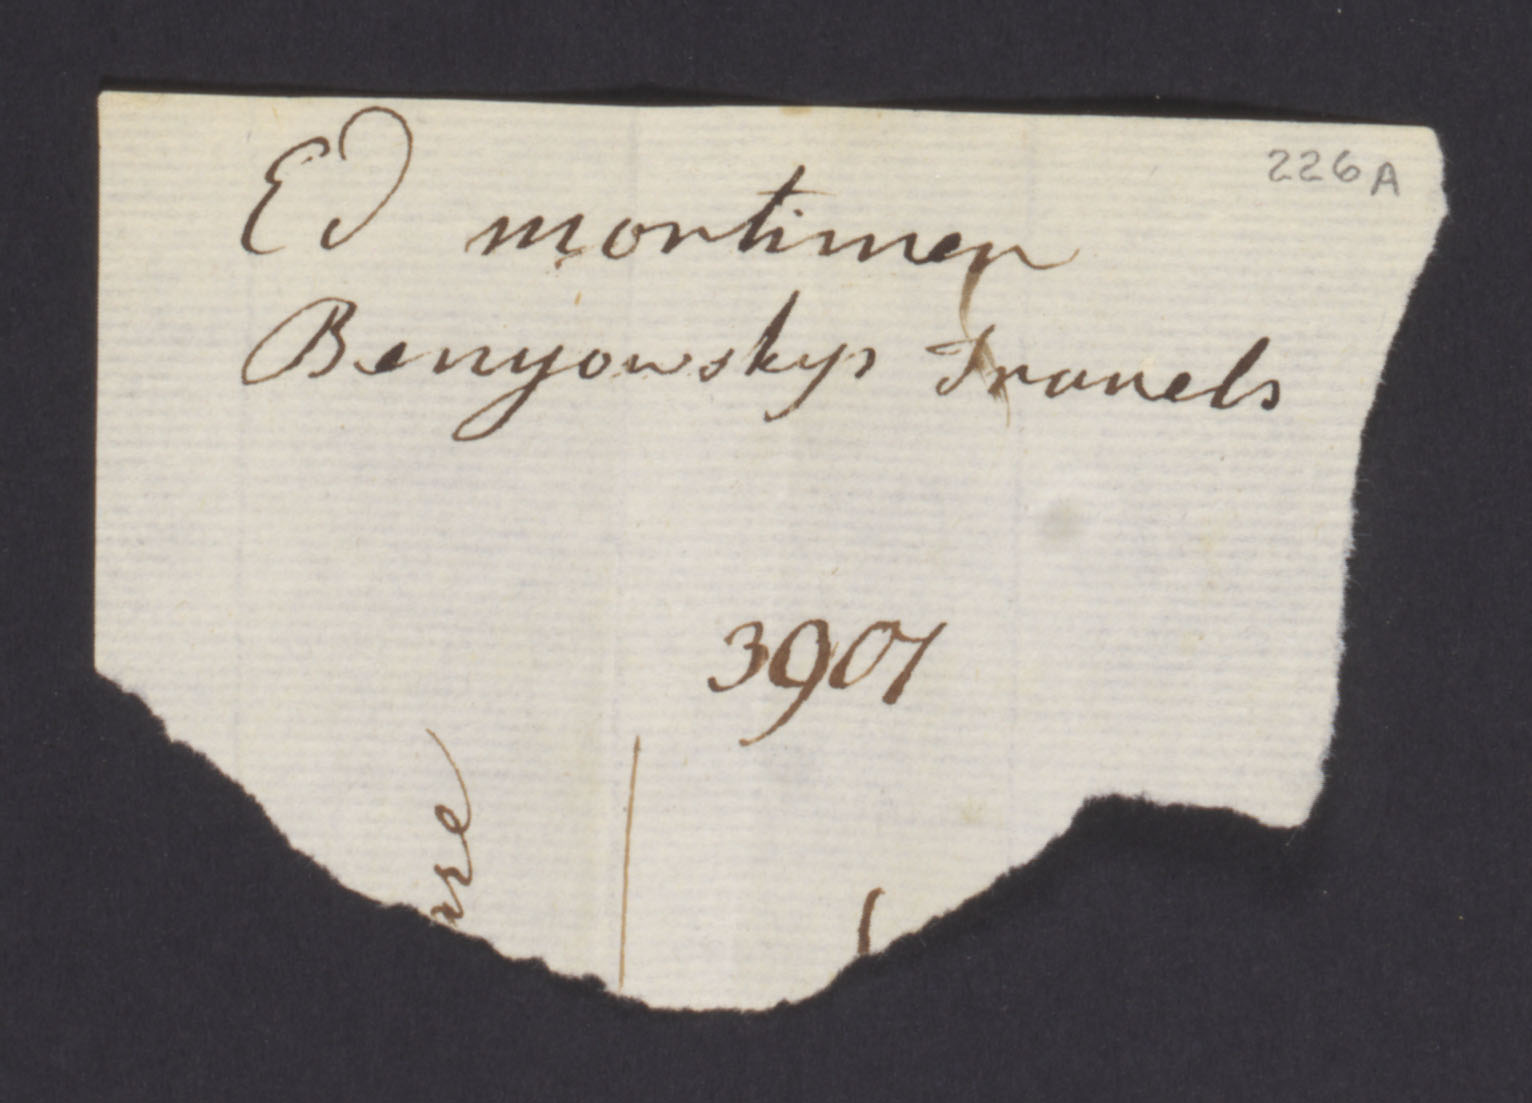 226A
Ed mortimer
Benyowskys Travels
3907